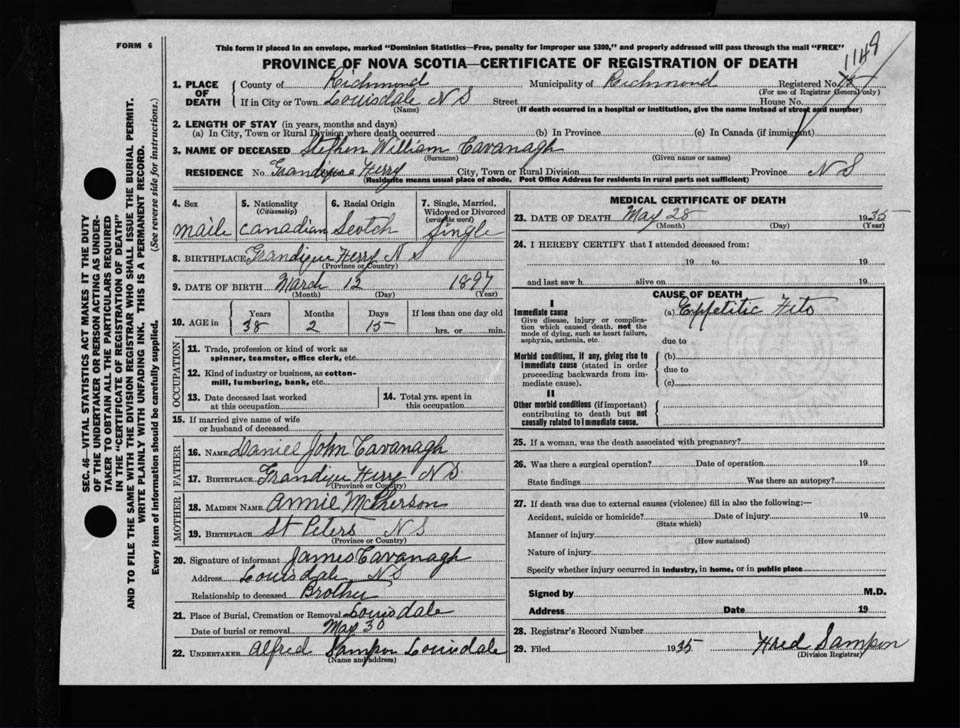 FORM 6
This form if placed in an envelope, marked "Dominion Statistics—Free, penalty for improper use $300," and properly addressed will pass through the mail "FREE"
PROVINCE OF NOVA SCOTIA—CERTIFICATE OF REGISTRATION OF DEATH
1149
1. PLACE OF DEATH
County of Richmond Municipality of Richmond Registered No.
(For use of Registrar General only)
If in City or Town Louisdale N S Street House No.
(Name) (If death occurred in a hospital or institution, give the name instead of street and number)
2. LENGTH OF STAY (in years, months and days)
(a) In City, Town or Rural Division where death occurred (b) In Province (c) In Canada (if immigrant)
3. NAME OF DECEASED Stephen William Cavanagh
(Surname) (Given name or names)
RESIDENCE No. Grandique Ferry City, Town or Rural Division Province N S
(Residence means usual place of abode. Post Office Address for residents in rural parts not sufficient)
4. Sex
maile
5. Nationality (Citizenship)
Canadian
6. Racial Origin
Scotch
7. Single, Married, Widowed or Divorced (write the word)
Single
8. BIRTHPLACE Grandique Ferry N S
(Province or Country)
9. DATE OF BIRTH March 12 1897
(Month) (Day) (Year)
10. AGE in
Years Months Days If less than one day old
38 2 15 hrs. or min.
OCCUPATION
11. Trade, profession or kind of work as spinner, teamster, office clerk, etc.
12. Kind of industry or business, as cotton-mill, lumbering, bank, etc.
13. Date deceased last worked at this occupation
14. Total yrs. spent in this occupation
15. If married give name of wife or husband of deceased
FATHER
16. NAME Daniel John Cavanagh
17. BIRTHPLACE Grandique Ferry N S
(Province or Country)
MOTHER
18. MAIDEN NAME Annie McPherson
19. BIRTHPLACE St Peters N S
(Province or Country)
20. Signature of informant James Cavanagh
Address Louisdale N S
Relationship to deceased Brother
21. Place of Burial, Cremation or Removal Louisdale
Date of burial or removal May 30
22. UNDERTAKER Alfred Sampson Louisdale
(Name and address)
MEDICAL CERTIFICATE OF DEATH
23. DATE OF DEATH May 28 1935
(Month) (Day) (Year)
24. I HEREBY CERTIFY that I attended deceased from:
19 to 19
and last saw h alive on 19
CAUSE OF DEATH
I
Immediate cause (a) Eppetitic Fits
Give disease, injury or complication which caused death, not the mode of dying, such as heart failure, asphyxia, asthenia, etc.
due to
Morbid conditions, if any, giving rise to immediate cause (stated in order proceeding backwards from immediate cause).
(b)
due to
(c)
II
Other morbid conditions (if important) contributing to death but not causally related to immediate cause.
25. If a woman, was the death associated with pregnancy?
26. Was there a surgical operation? Date of operation 19
State findings Was there an autopsy?
27. If death was due to external causes (violence) fill in also the following:—
Accident, suicide or homicide? Date of injury 19
(State which)
Manner of injury
(How sustained)
Nature of injury
Specify whether injury occurred in industry, in home, or in public place
Signed by M.D.
Address Date 19
28. Registrar's Record Number
29. Filed 1935 Fred Sampson
(Division Registrar)
SEC. 46—VITAL STATISTICS ACT MAKES IT THE DUTY
OF THE UNDERTAKER OR PERSON ACTING AS UNDER-
TAKER TO OBTAIN ALL THE PARTICULARS REQUIRED
IN THE "CERTIFICATE OF REGISTRATION OF DEATH"
AND TO FILE THE SAME WITH THE DIVISION REGISTRAR WHO SHALL ISSUE THE BURIAL PERMIT.
WRITE PLAINLY WITH UNFADING INK. THIS IS A PERMANENT RECORD.
Every item of information should be carefully supplied. (See reverse side for instructions.)